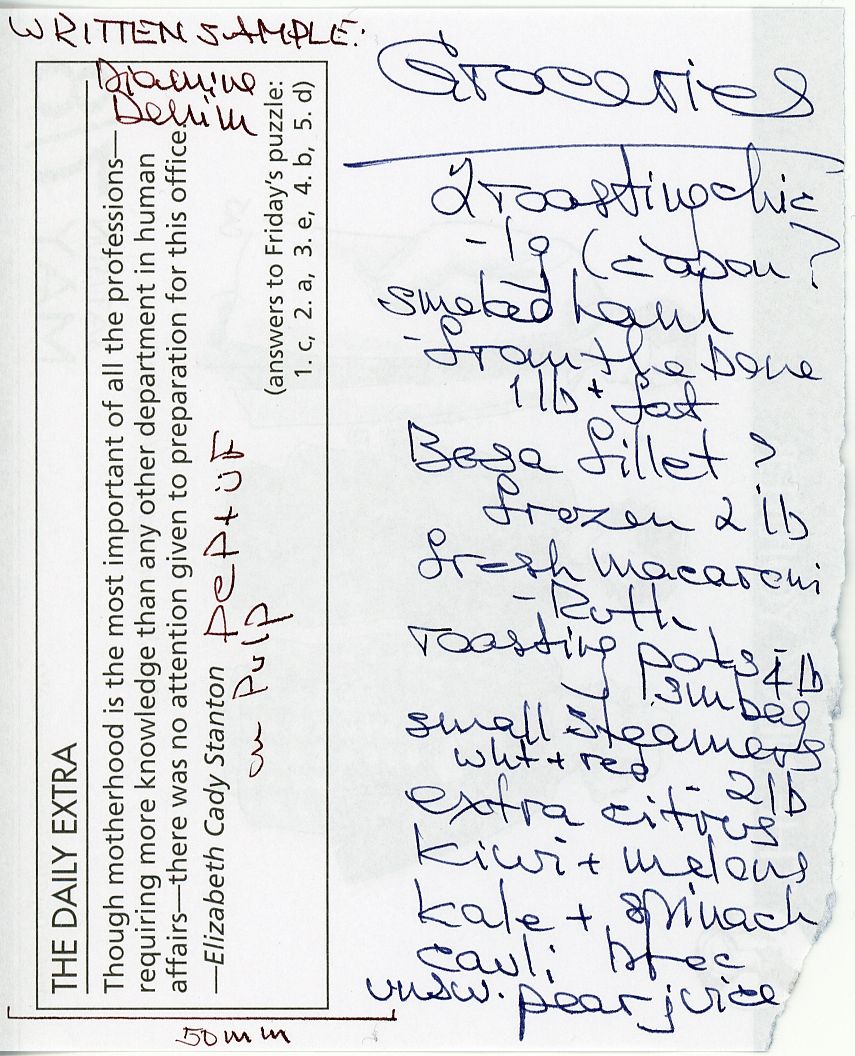 WRITTEN SAMPLE:
Diamine
Denim
THE DAILY EXTRA
Though motherhood is the most important of all the professions—
requiring more knowledge than any other department in human
affairs—there was no attention given to preparation for this office.
—Elizabeth Cady Stanton
(answers to Friday's puzzle:
1. c, 2. a, 3. e, 4. b, 5. d)
on Pulp
50mm
Groceries
2 roasting chic
- lg (capon?
smoked ham
- from the bone
1 lb + fat
Basa fillet ?
frozen 2 lb
fresh macaroni
- Rotti
roasting pots - 4 lb
sm bag
small steamers
wht + red - 2 lb
extra citrus
kiwi + melons
kale + spinach
cauli, broc
unsw. pear juice